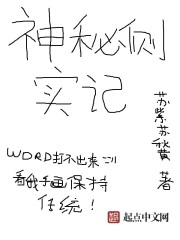 神秘侧
实记
苏紫苏欣黄 著
WORD打不出来
看我手画保持
传统！
起点中文网